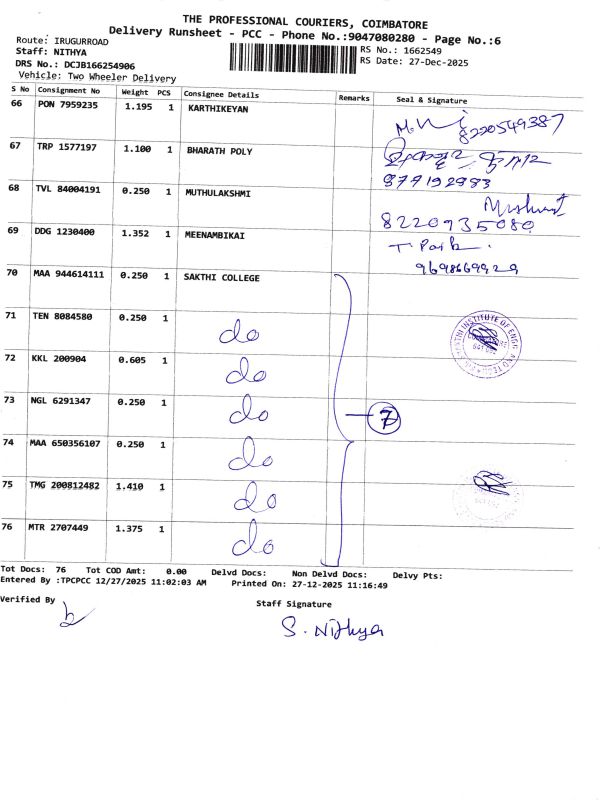 THE PROFESSIONAL COURIERS, COIMBATORE
Delivery Runsheet - PCC - Phone No.:9047080280 - Page No.:6
Route: IRUGURROAD
Staff: NITHYA
RS No.: 1662549
DRS No.: DCJB166254906
RS Date: 27-Dec-2025
Vehicle: Two Wheeler Delivery
S No Consignment No Weight PCS Consignee Details Remarks Seal & Signature
66 PON 7959235 1.195 1 KARTHIKEYAN
8220549387
67 TRP 1577197 1.100 1 BHARATH POLY
68 TVL 84004191 0.250 1 MUTHULAKSHMI
8220935080
69 DDG 1230400 1.352 1 MEENAMBIKAI
9698669929
70 MAA 944614111 0.250 1 SAKTHI COLLEGE
71 TEN 8084580 0.250 1 do
72 KKL 200904 0.605 1 do
73 NGL 6291347 0.250 1 do
7
74 MAA 650356107 0.250 1 do
75 TMG 200812482 1.410 1 do
76 MTR 2707449 1.375 1 do
Tot Docs: 76 Tot COD Amt: 0.00 Delvd Docs: Non Delvd Docs: Delvy Pts:
Entered By :TPCPCC 12/27/2025 11:02:03 AM Printed On: 27-12-2025 11:16:49
Verified By
Staff Signature
S. Nithya